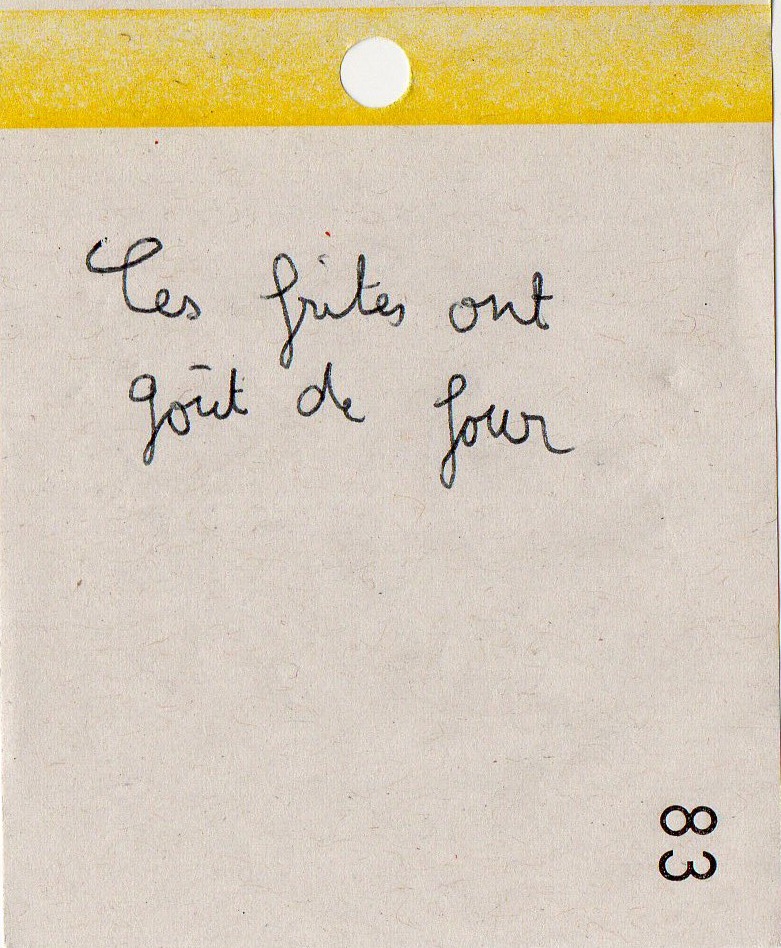 Les frites ont
goût de four
83